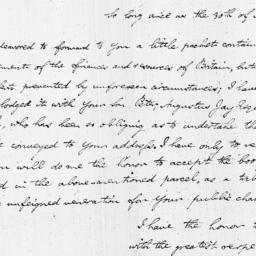 So long since as the 30th of
deavored to forward to you a little packet contain
ments of the finances and resources of Britain, but
prevented by unforeseen circumstances; I have
lodged it with your son Peter Augustus Jay Esq
who has been so obliging as to undertake th
conveyed to your address. I have only to re
you will do me the honor to accept the boo
d in the above-mentioned parcel, as a trib
unfeigned veneration for your public char
I have the honor
with the greatest respe